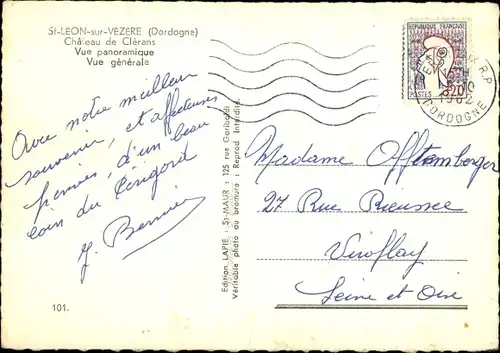 St-LEON-sur-VEZERE (Dordogne)
Château de Clérans
Vue panoramique
Vue générale
Avec notre meilleur
souvenir, et affectueuses
pensées, d'un beau
coin du Périgord
101.
Edition LAPIE - St-MAUR : 125 rue Garibaldi
Véritable photo au bromure - Reprod. interdite.
REPUBLIQUE FRANÇAISE
0,20
POSTES
R.P.
1962
DORDOGNE
Madame Offtemberger
27 Rue Rieussec
Viroflay
Seine et Oise